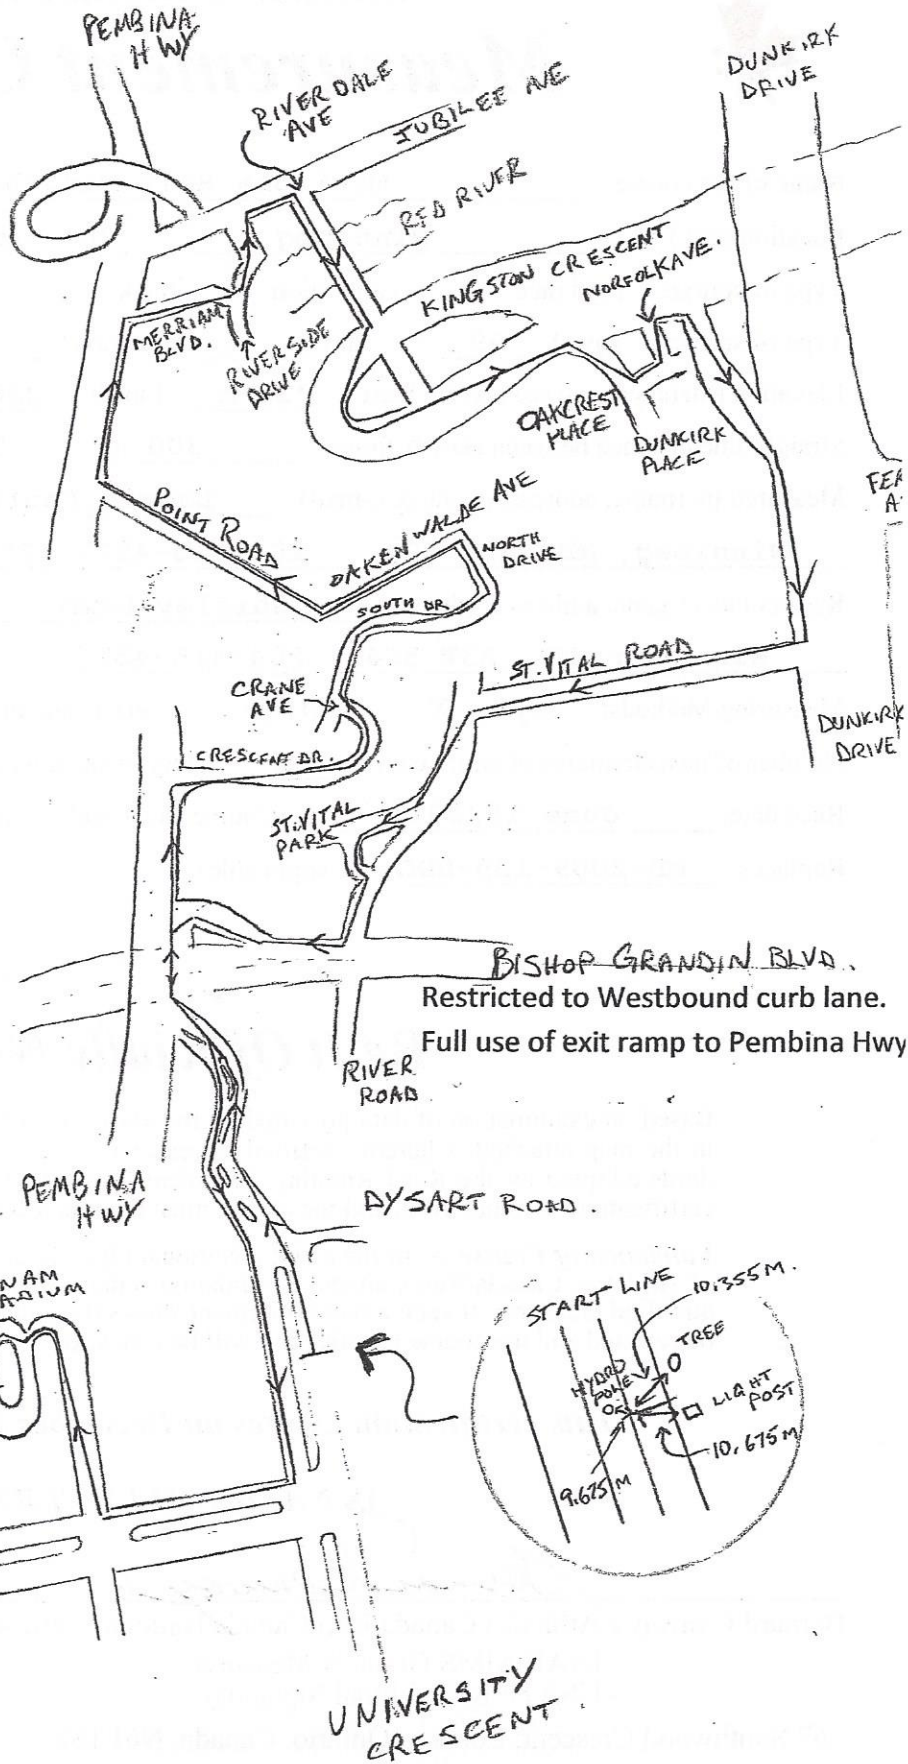 PEMBINA
HWY
RIVERDALE
AVE
JUBILEE AVE
DUNKIRK
DRIVE
RED RIVER
KINGSTON CRESCENT
NORFOLK AVE.
MERRIAM
BLVD.
RIVERSIDE
DRIVE
OAKCREST
PLACE
DUNKIRK
PLACE
FEA
A
POINT ROAD
OAKENWALDE AVE
NORTH
DRIVE
SOUTH DR
ST. VITAL ROAD
CRANE
AVE
DUNKIRK
DRIVE
CRESCENT DR.
ST. VITAL
PARK
BISHOP GRANDIN BLVD.
Restricted to Westbound curb lane.
Full use of exit ramp to Pembina Hwy
RIVER
ROAD
PEMBINA
HWY
DYSART ROAD
NAM
ADIUM
START LINE
10,355 M.
TREE
HYDRO
POLE
LIGHT
POST
10,675 M
9.675 M
UNIVERSITY
CRESCENT.